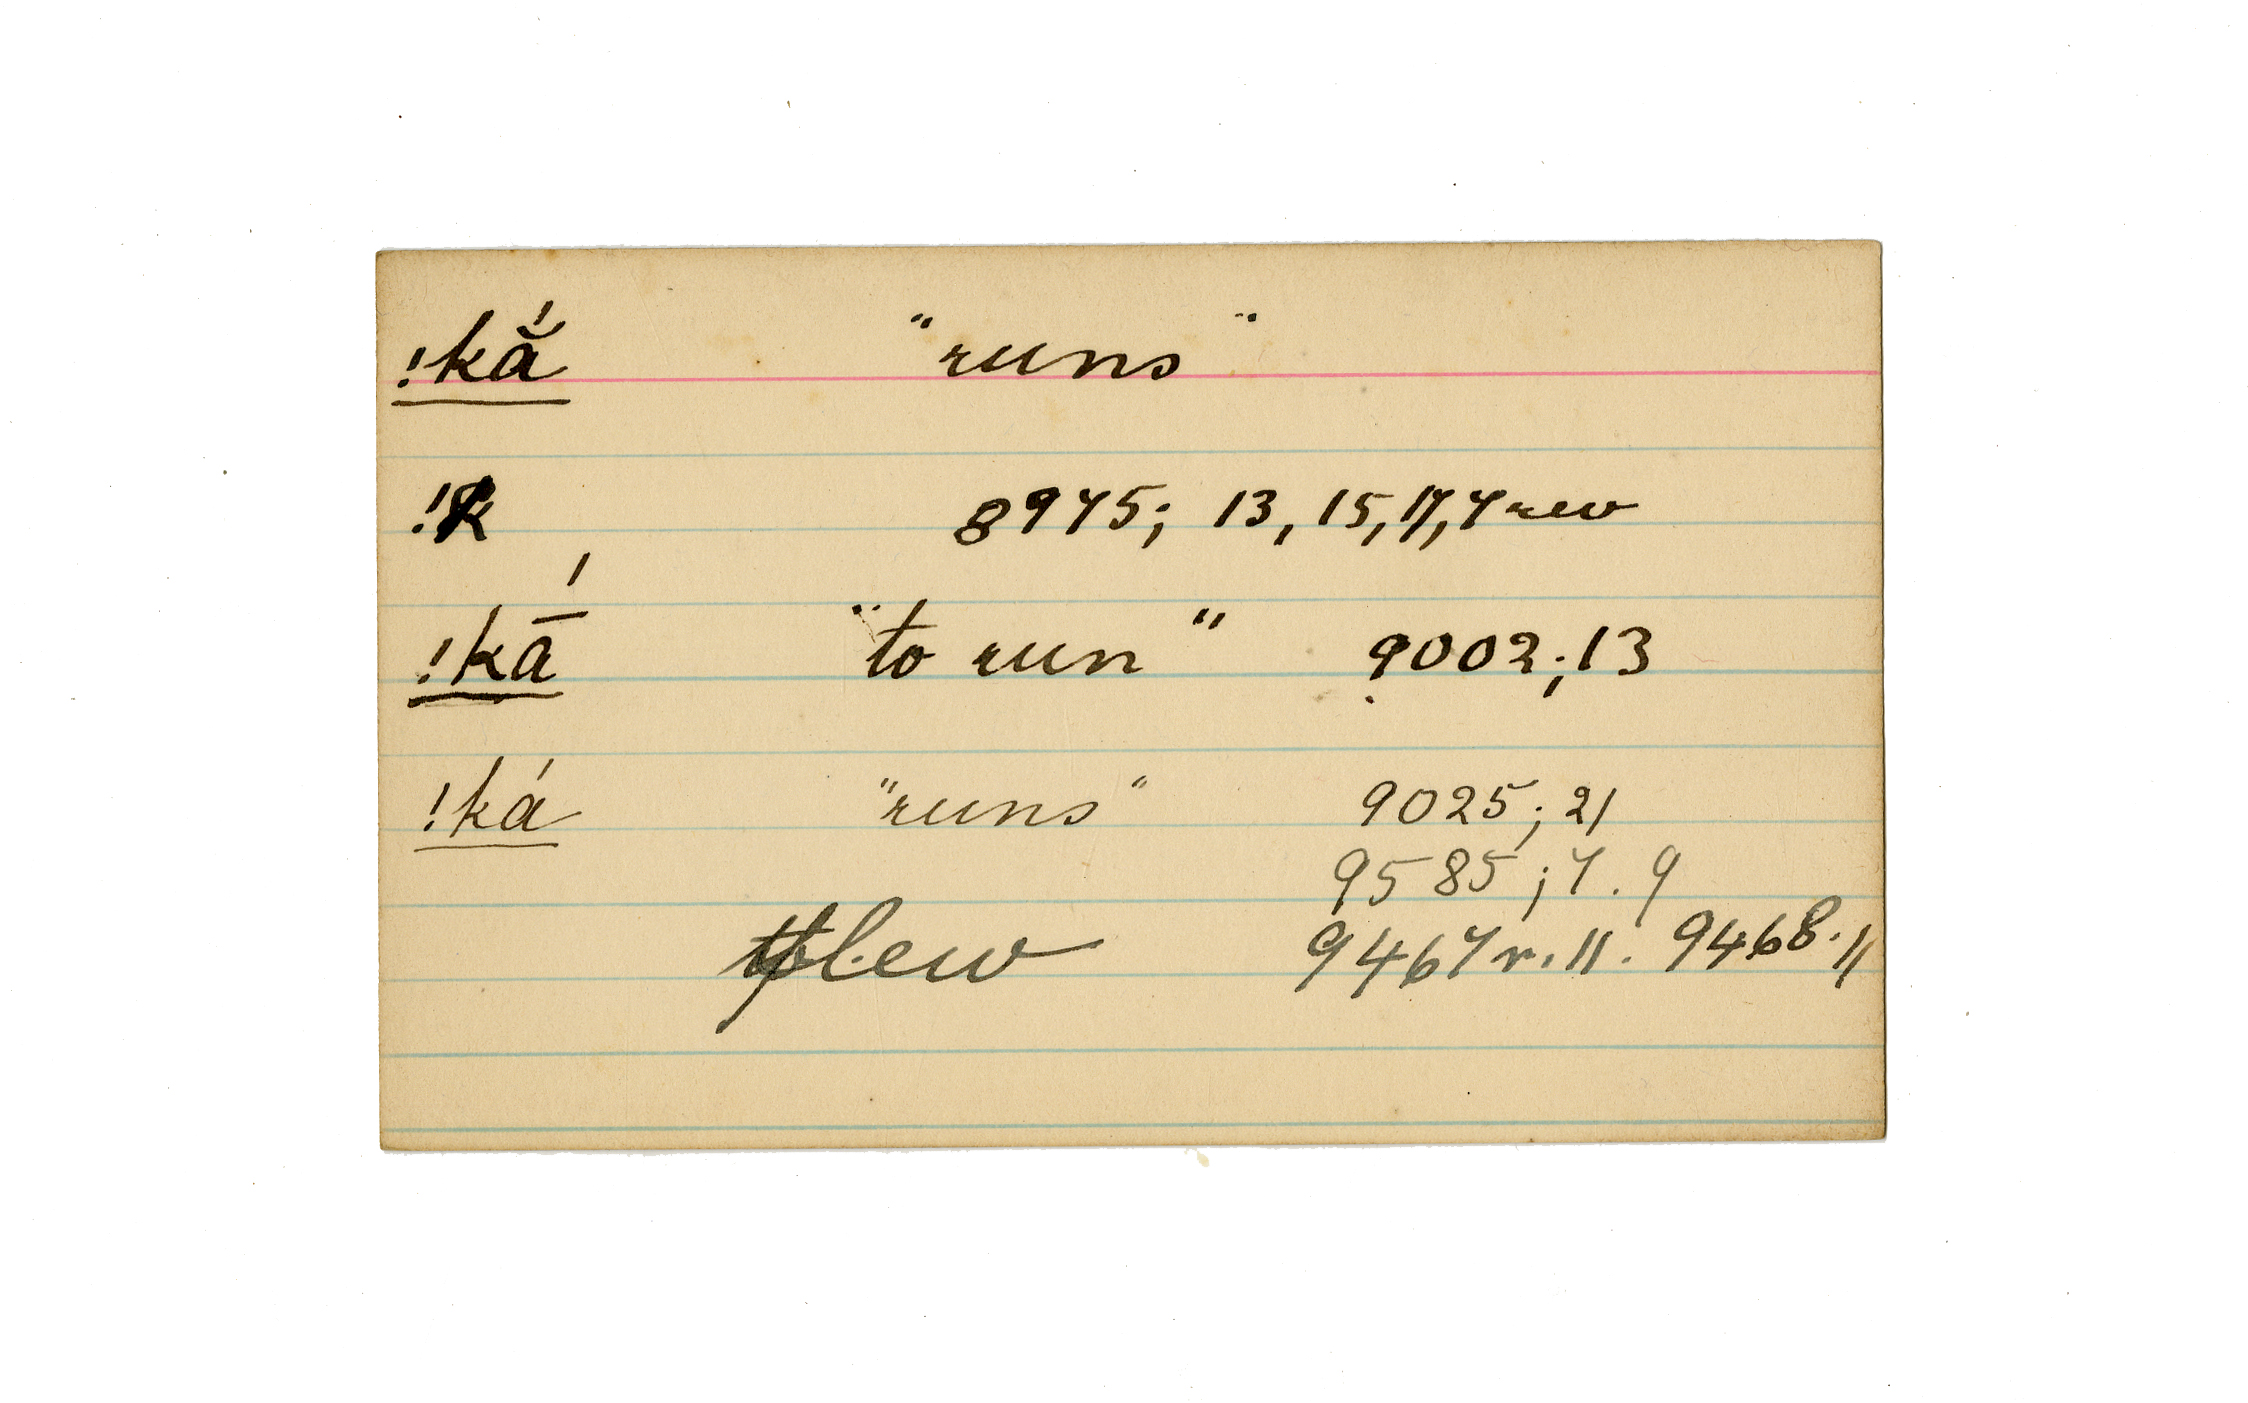 !kắ "runs"
!k 8975; 13, 15, 17, 7 rev
!kā́ "to run" 9002; 13
!ká "runs" 9025; 21
9585; 7. 9
flew 9467 r. 11. 9468. 11